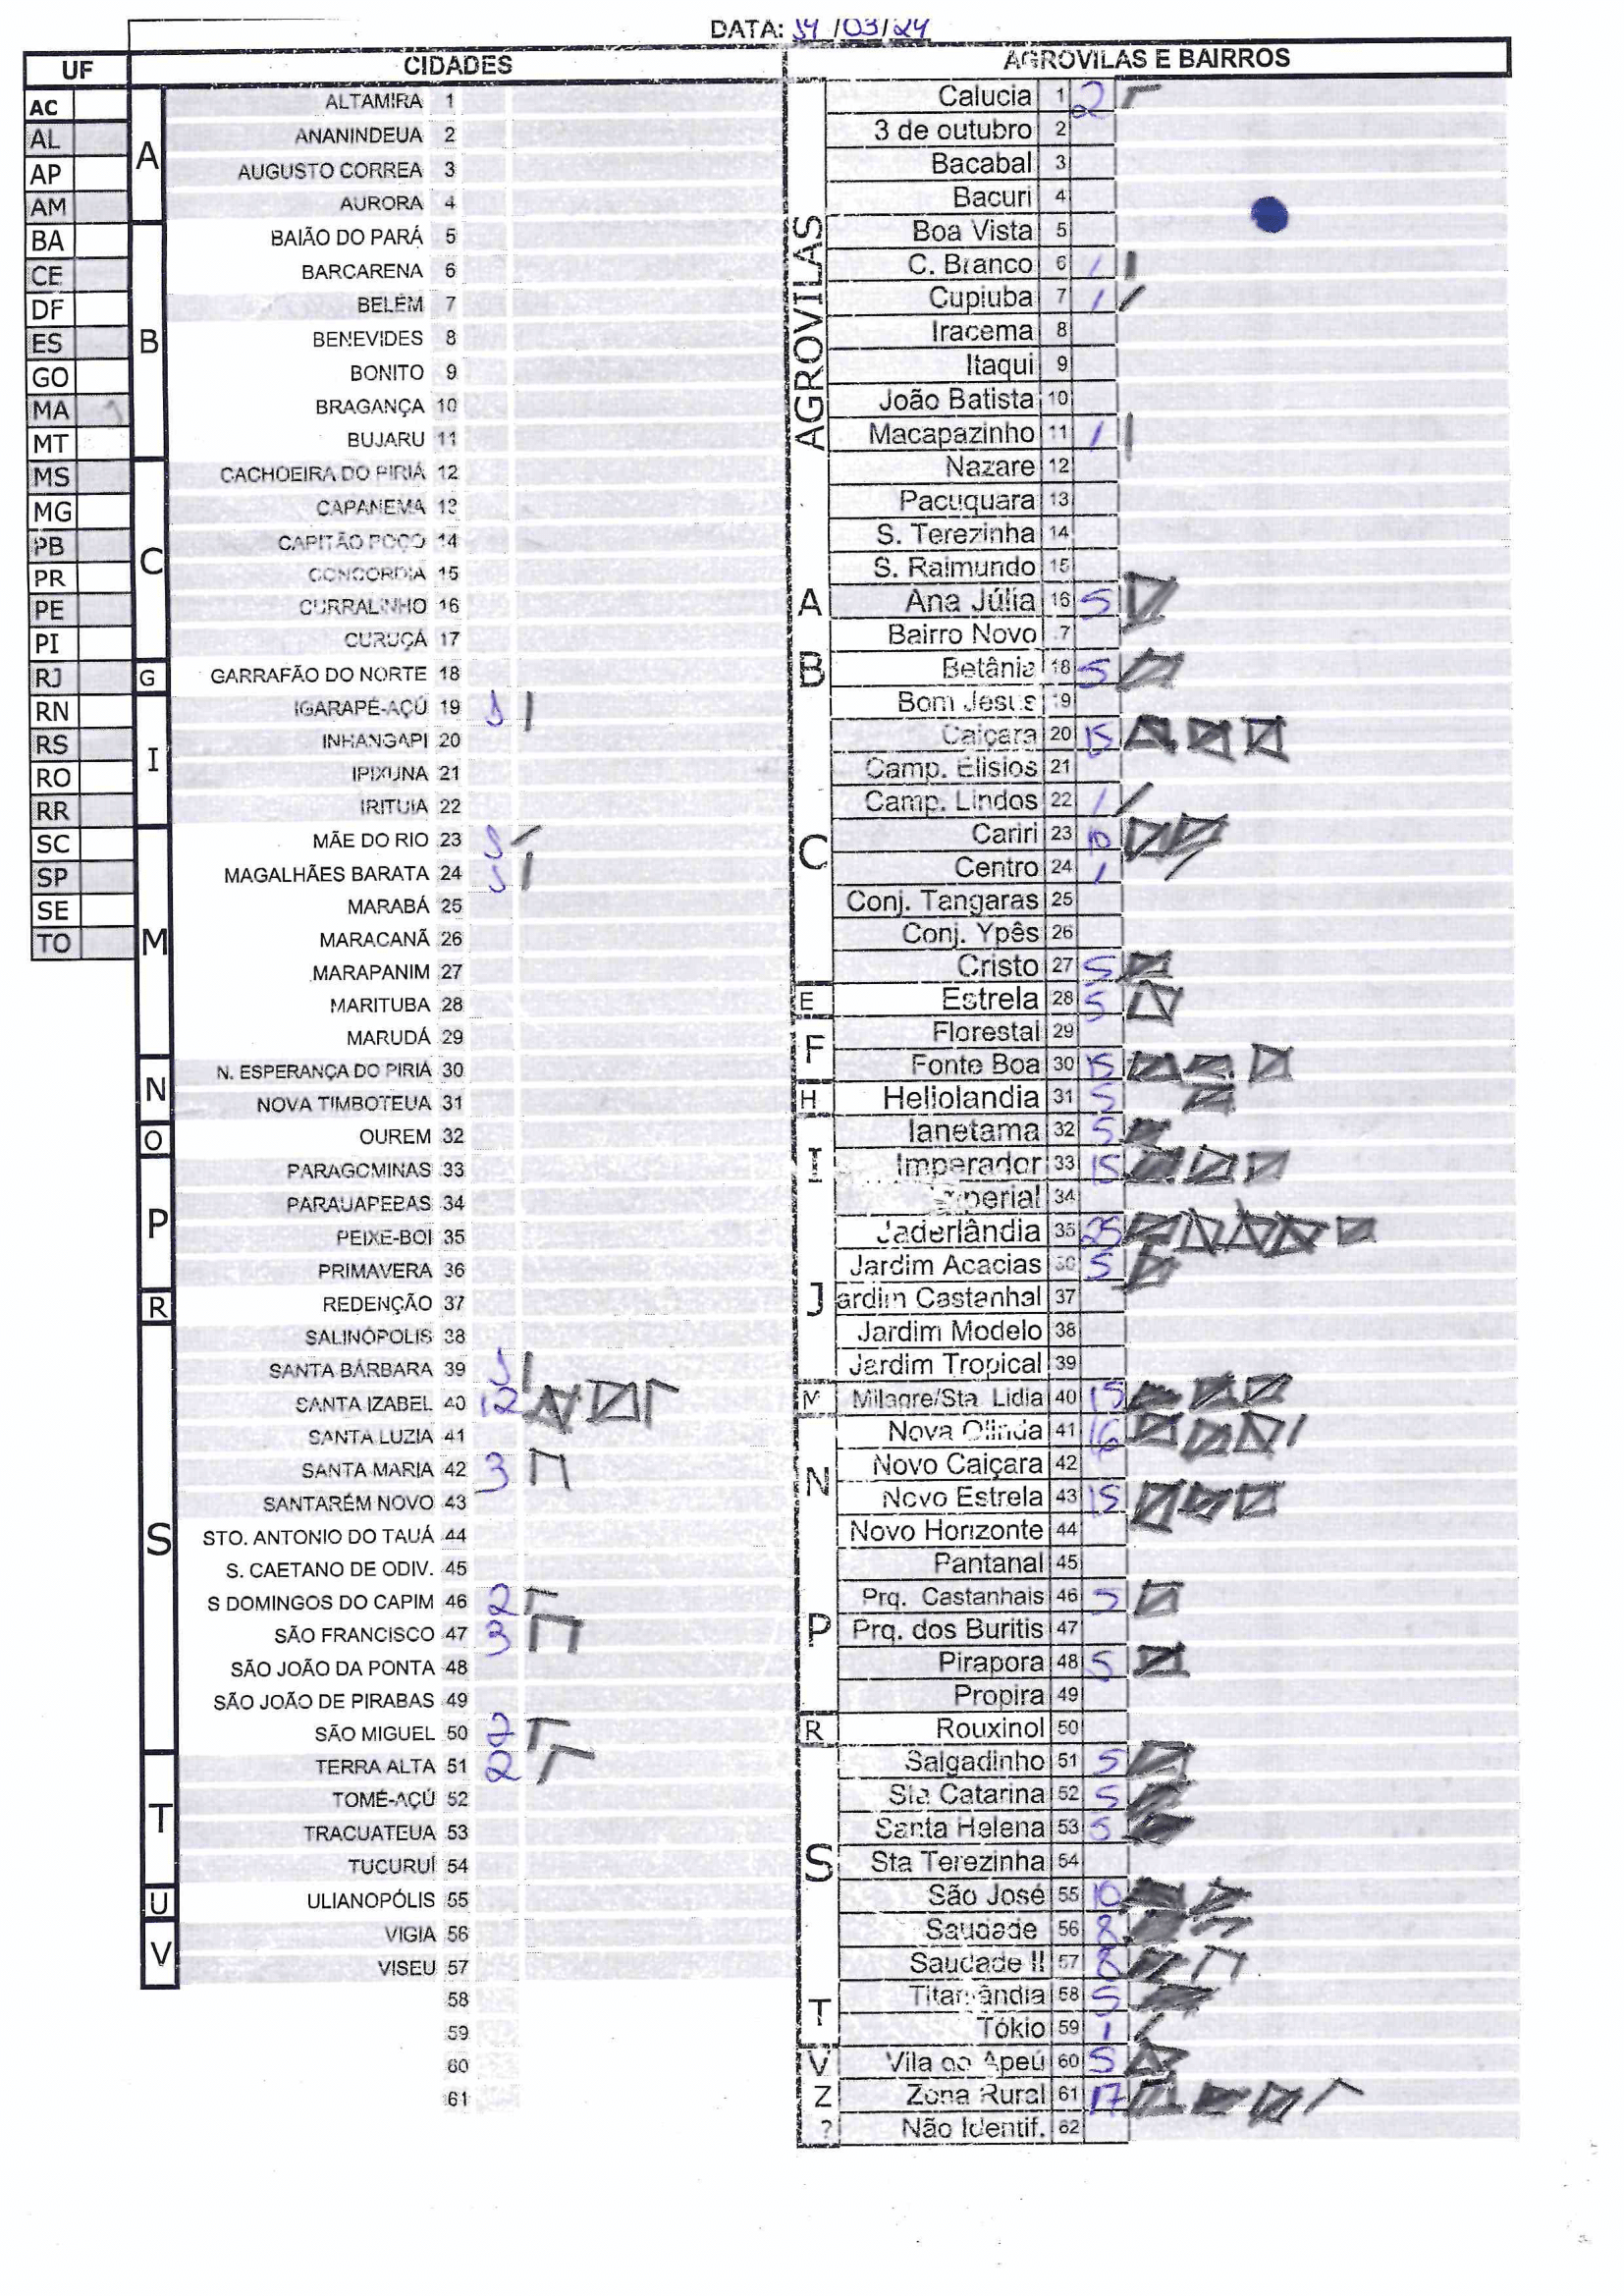 DATA: 14/03/24
UF
CIDADES
AGROVILAS E BAIRROS
AC
AL
AP
AM
BA
CE
DF
ES
GO
MA
MT
MS
MG
PB
PR
PE
PI
RJ
RN
RS
RO
RR
SC
SP
SE
TO
A
ALTAMIRA 1
ANANINDEUA 2
AUGUSTO CORREA 3
AURORA 4
B
BAIÃO DO PARÁ 5
BARCARENA 6
BELÉM 7
BENEVIDES 8
BONITO 9
BRAGANÇA 10
BUJARU 11
C
CACHOEIRA DO PIRIÁ 12
CAPANEMA 13
CAPITÃO POÇO 14
CONCORDIA 15
CURRALINHO 16
CURUÇÁ 17
G
GARRAFÃO DO NORTE 18
I
IGARAPÉ-AÇÚ 19 1
INHANGAPI 20
IPIXUNA 21
IRITUIA 22
M
MÃE DO RIO 23 1
MAGALHÃES BARATA 24 1
MARABÁ 25
MARACANÃ 26
MARAPANIM 27
MARITUBA 28
MARUDÁ 29
N
N. ESPERANÇA DO PIRIÁ 30
NOVA TIMBOTEUA 31
O
OUREM 32
P
PARAGOMINAS 33
PARAUAPEBAS 34
PEIXE-BOI 35
PRIMAVERA 36
R
REDENÇÃO 37
S
SALINÓPOLIS 38
SANTA BÁRBARA 39 1
SANTA IZABEL 40 12
SANTA LUZIA 41
SANTA MARIA 42 3
SANTARÉM NOVO 43
STO. ANTONIO DO TAUÁ 44
S. CAETANO DE ODIV. 45
S DOMINGOS DO CAPIM 46 2
SÃO FRANCISCO 47 3
SÃO JOÃO DA PONTA 48
SÃO JOÃO DE PIRABAS 49
SÃO MIGUEL 50 2
T
TERRA ALTA 51 2
TOMÉ-AÇÚ 52
TRACUATEUA 53
TUCURUÍ 54
U
ULIANOPÓLIS 55
V
VIGIA 56
VISEU 57
58
59
60
61
AGROVILAS
Calucia 1 2
3 de outubro 2
Bacabal 3
Bacuri 4
Boa Vista 5
C. Branco 6 1
Cupiuba 7 1
Iracema 8
Itaqui 9
João Batista 10
Macapazinho 11 1
Nazare 12
Pacuquara 13
S. Terezinha 14
S. Raimundo 15
A
Ana Júlia 16 5
B
Bairro Novo 17
Betânia 18 5
Bom Jesus 19
C
Caiçara 20 15
Camp. Elisios 21
Camp. Lindos 22 1
Cariri 23 10
Centro 24 1
Conj. Tangaras 25
Conj. Ypês 26
Cristo 27 5
E
Estrela 28 5
F
Florestal 29
Fonte Boa 30 15
H
Heliolandia 31 5
I
Ianetama 32 5
Imperador 33 15
perial 34
J
Jaderlândia 35 25
Jardim Acacias 36 5
ardim Castanhal 37
Jardim Modelo 38
Jardim Tropical 39
M
Milagre/Sta Lidia 40 15
N
Nova Olinda 41 16
Novo Caiçara 42
Novo Estrela 43 15
Novo Horizonte 44
P
Pantanal 45
Prq. Castanhais 46 5
Prq. dos Buritis 47
Pirapora 48 5
Propira 49
R
Rouxinol 50
S
Salgadinho 51 5
Sta Catarina 52 5
Santa Helena 53 5
Sta Terezinha 54
São José 55 10
Saudade 56 8
Saudade II 57 8
T
Titanlândia 58 5
Tókio 59 1
V
Vila do Apeú 60 5
Z
Zona Rural 61 17
?
Não Identif. 62